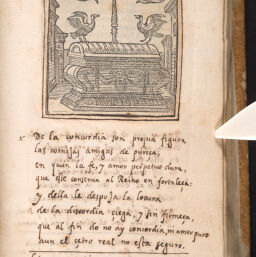 De la concordia son propia figura
las cornejas amigas de pureza,
en quien la fe, y amor perpetuo dura,
que este conserua al Reino en fortaleza:
y della se despoja la locura
de la discordia ciega, y sin firmeza,
que al fin do no ay concordia, ni amor puro
aun el cetro real no esta seguro.